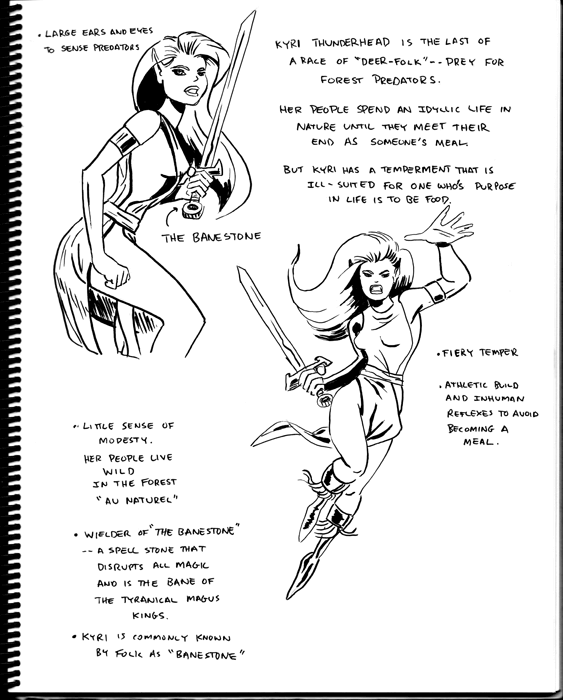 • LARGE EARS AND EYES
TO SENSE PREDATORS
KYRI THUNDERHEAD IS THE LAST OF
A RACE OF "DEER-FOLK"-- PREY FOR
FOREST PREDATORS.
HER PEOPLE SPEND AN IDYLLIC LIFE IN
NATURE UNTIL THEY MEET THEIR
END AS SOMEONE'S MEAL.
BUT KYRI HAS A TEMPERMENT THAT IS
ILL-SUITED FOR ONE WHO'S PURPOSE
IN LIFE IS TO BE FOOD.
THE BANESTONE
• FIERY TEMPER
• ATHLETIC BUILD
AND INHUMAN
REFLEXES TO AVOID
BECOMING A
MEAL.
• LITTLE SENSE OF
MODESTY.
HER PEOPLE LIVE
WILD
IN THE FOREST
"AU NATUREL"
• WIELDER OF "THE BANESTONE"
-- A SPELL STONE THAT
DISRUPTS ALL MAGIC
AND IS THE BANE OF
THE TYRANICAL MAGUS
KINGS.
• KYRI IS COMMONLY KNOWN
BY FOLK AS "BANESTONE"